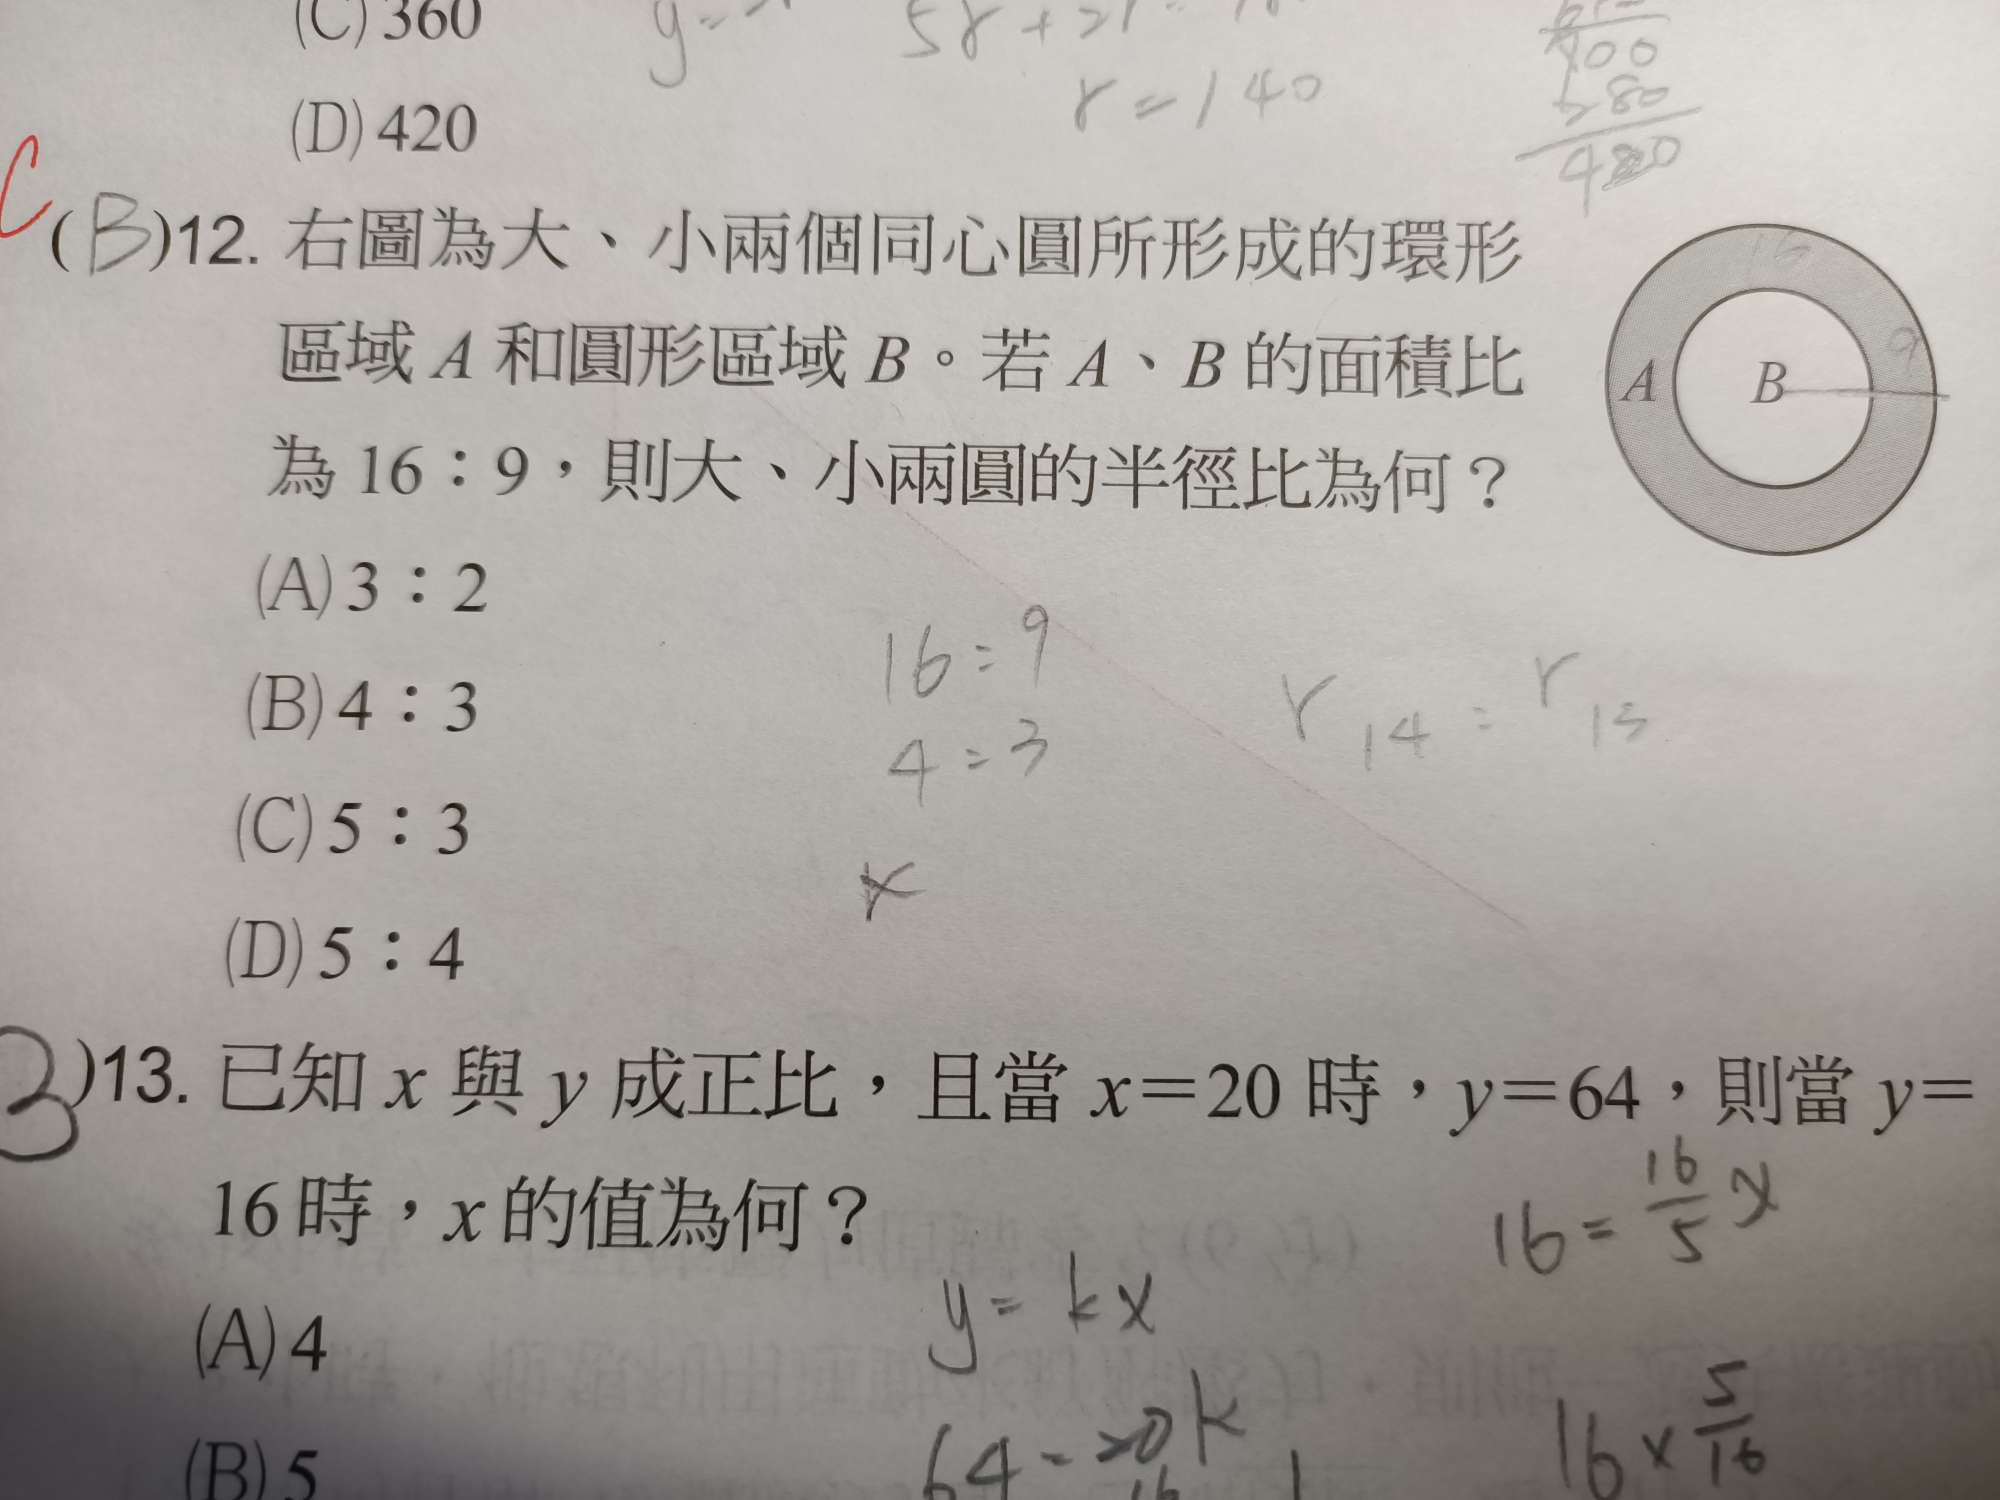 (C) 360
(D) 420
r = 140
C
( B )12. 右圖為大、小兩個同心圓所形成的環形
區域 A 和圓形區域 B。若 A、B 的面積比
為 16：9，則大、小兩圓的半徑比為何？
16
9
A
B
(A) 3：2
(B) 4：3
(C) 5：3
(D) 5：4
16 : 9
4 : 3
r
)13. 已知 x 與 y 成正比，且當 x＝20 時，y＝64，則當 y＝
16 時，x 的值為何？
(A) 4
(B) 5
y = kx
64 = 20k
16 = 16/5 x
16 × 5/16